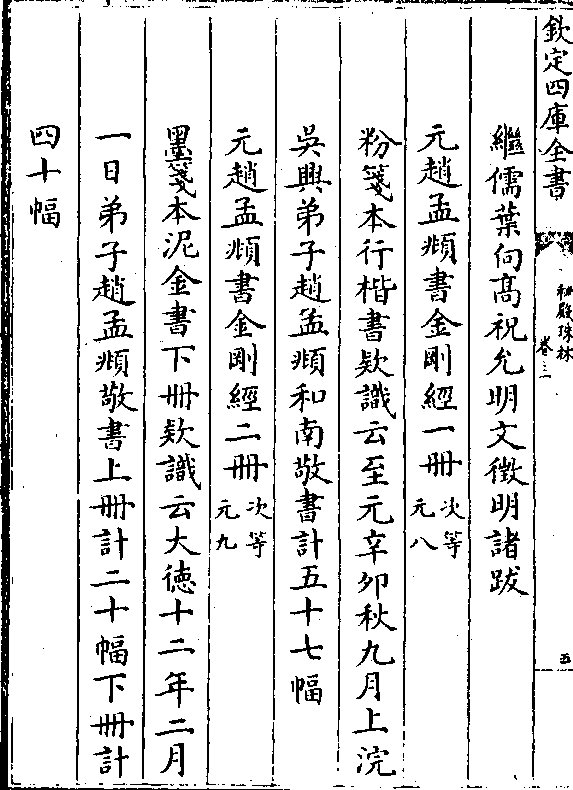 欽定四庫全書
秘殿珠林
卷三
五
繼儒葉向髙祝允明文徵明諸跋
元趙孟頫書金剛經一冊次等元八
粉箋本行楷書欵識云至元辛卯秋九月上浣
吳興弟子趙孟頫和南敬書計五十七幅
元趙孟頫書金剛經二冊次等元九
墨箋本泥金書下冊欵識云大徳十二年二月
一日弟子趙孟頫敬書上冊計二十幅下冊計
四十幅